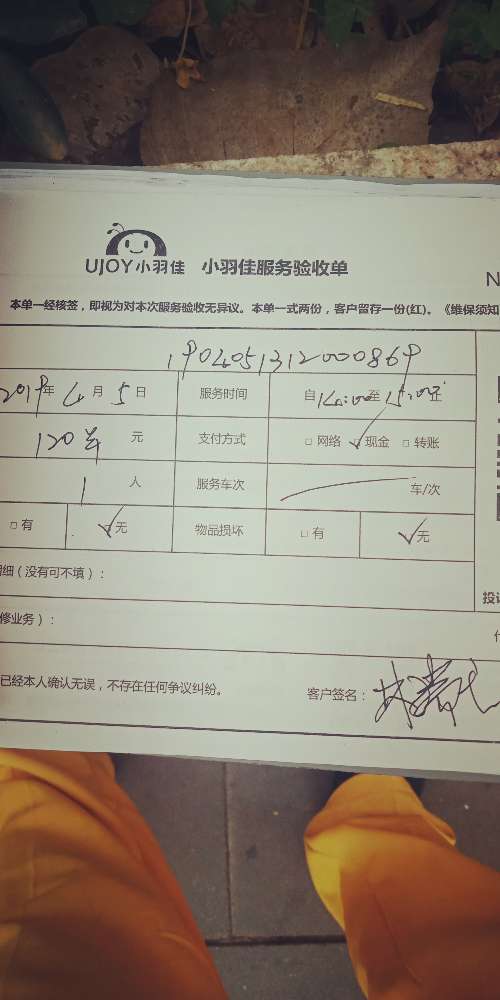 UJOY小羽佳 小羽佳服务验收单
N
本单一经核签，即视为对本次服务验收无异议。本单一式两份，客户留存一份(红)。《维保须知
1904051312000869
2019年 4月 5日 服务时间 自14:00至15:00止
120 元 支付方式 □ 网络 ☑ 现金 □ 转账
1 人 服务车次 车/次
□ 有 ☑ 无 物品损坏 □ 有 ☑ 无
明细（没有可不填）：
投诉
修业务）：
已经本人确认无误，不存在任何争议纠纷。 客户签名：